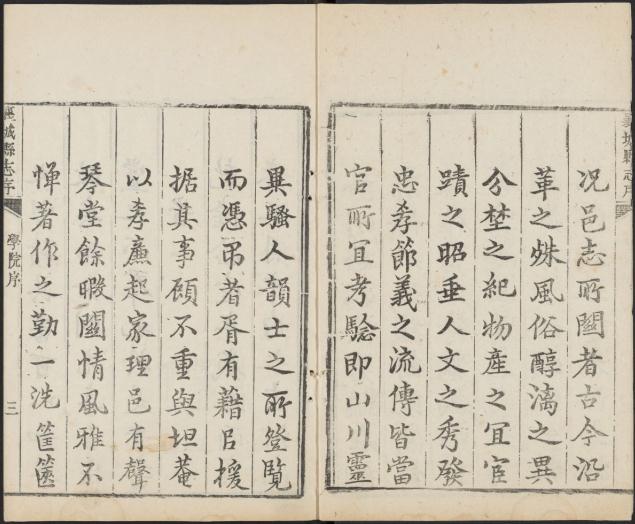 况邑志所關者古今沿
革之殊風俗醇漓之異
分埜之紀物産之宜宦
蹟之昭垂人文之秀發
忠孝節義之流傳皆當
官所宜考驗即山川靈
異騷人韻士之所登覽
而憑弔者胥有藉㠯援
据其事顧不重與坦菴
以孝廉起家理邑有聲
琴堂餘暇關情風雅不
憚著作之勤一洗筐篋
襄城縣志序
學院序
三